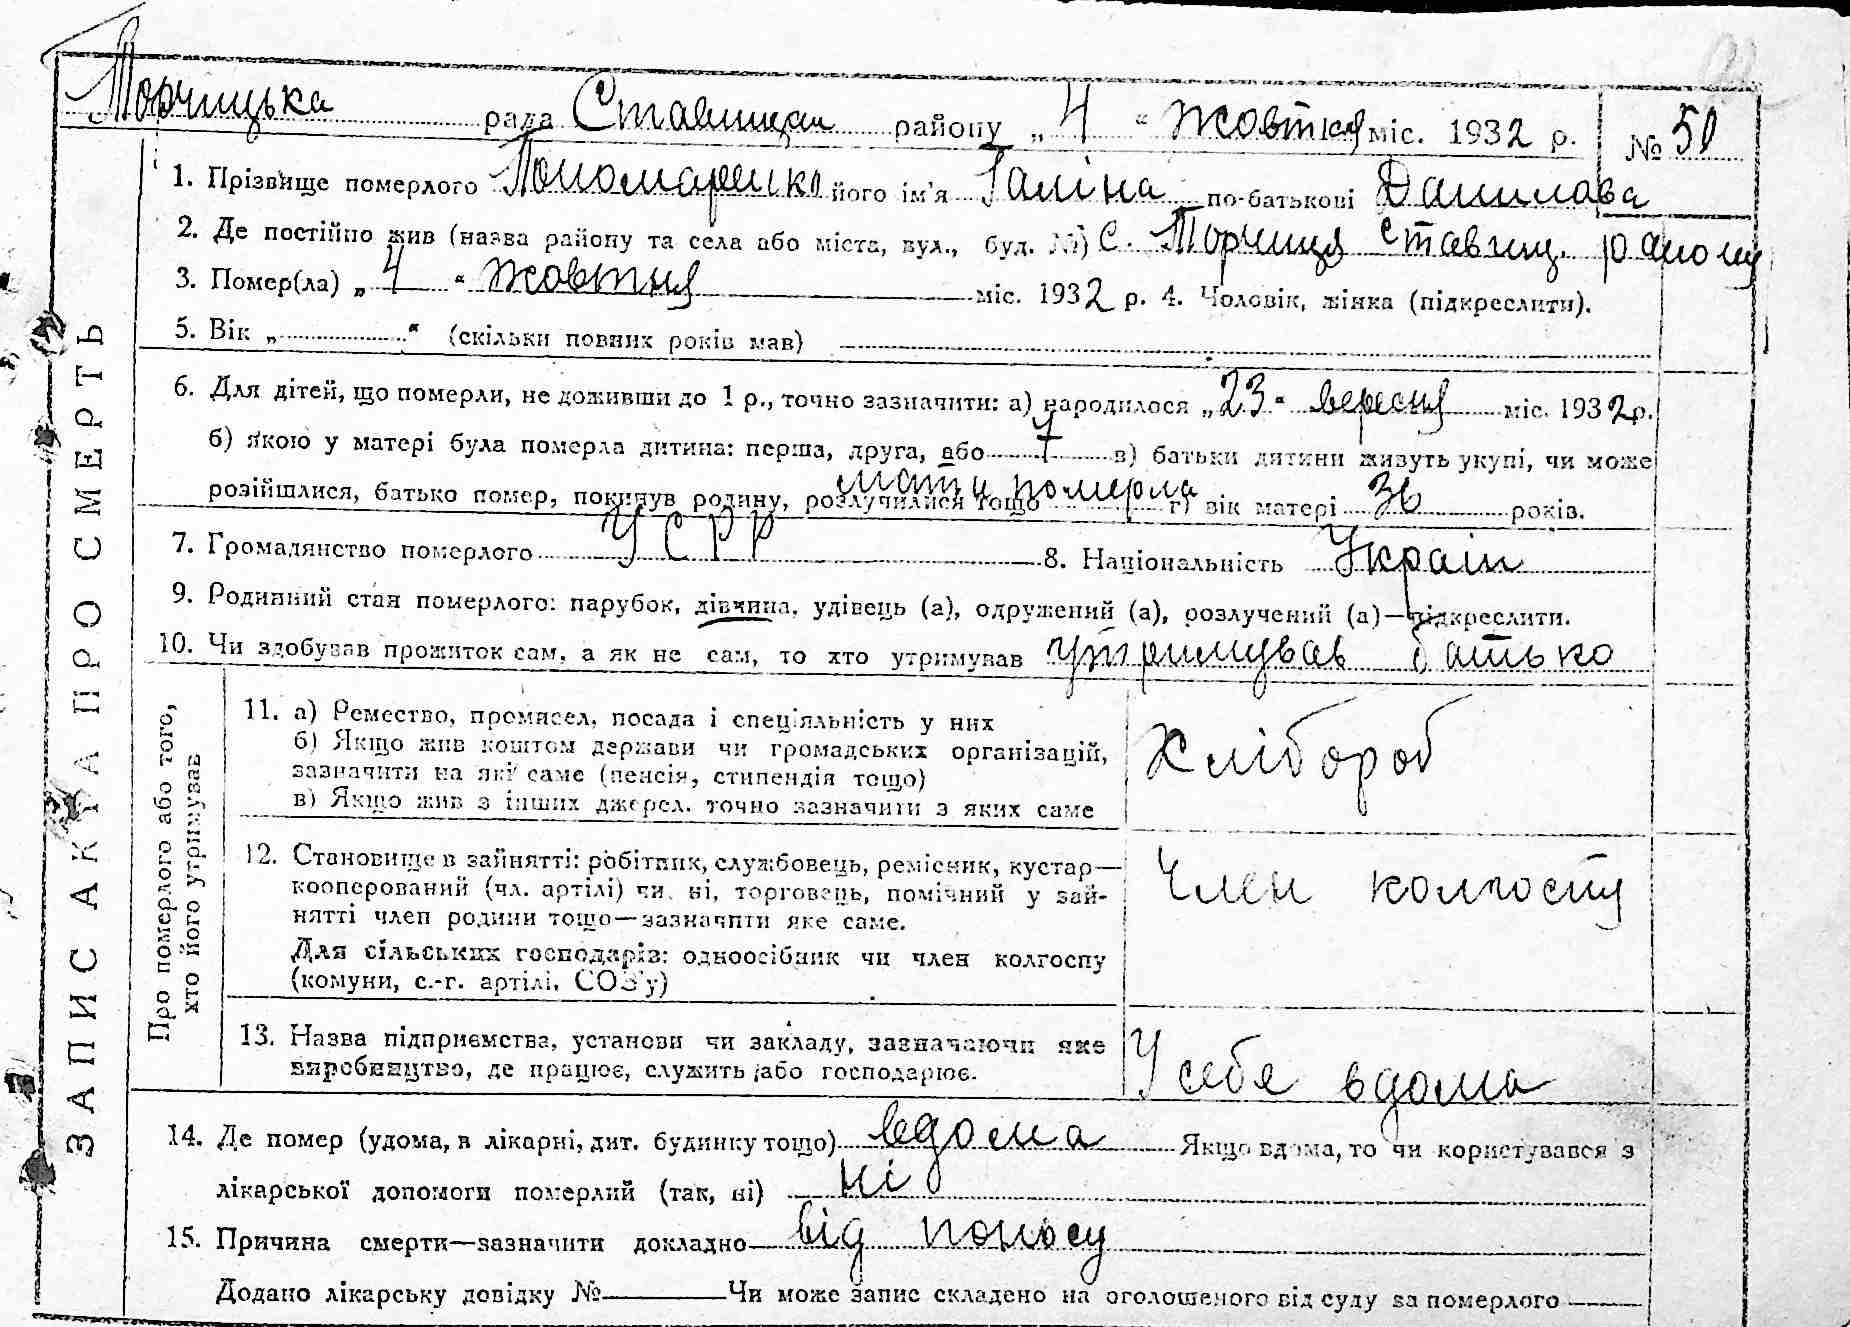 Торчицька рада Ставищан району „ 4 “ Жовтня міс. 1932 р. № 50
1. Прізвище померлого Пономаренко його ім'я Галіна по-батькові Данилова
2. Де постійно жив (назва району та села або міста, вул., буд. №) с. Торчиця Ставищ. району
3. Помер(ла) „ 4 “ Жовтня міс. 1932 р. 4. Чоловік, жінка (підкреслити).
5. Вік „ “ (скільки повних років мав)
6. Для дітей, що померли, не доживши до 1 р., точно зазначити: а) народилося „ 23 “ вересня міс. 1932 р.
б) якою у матері була померла дитина: перша, друга, або в) батьки дитини живуть укупі, чи може
розійшлися, батько помер, покинув родину, розлучилися тощо мати померла г) вік матері 36 років.
7. Громадянство померлого УСРР 8. Національність Україн
9. Родинний стан померлого: парубок, дівчина, удівець (а), одружений (а), розлучений (а)—підкреслити.
10. Чи здобував прожиток сам, а як не сам, то хто утримував утримував батько
Про померлого або того,
хто його утримував
11. а) Ремество, промисел, посада і спеціяльність у них
б) Якщо жив коштом держави чи громадських організацій,
зазначити на які саме (пенсія, стипендія тощо)
в) Якщо жив з інших джерел, точно зазначити з яких саме
Хлібороб
12. Становище в зайнятті: робітник, службовець, ремісник, кустар—
кооперований (чл. артілі) чи ні, торговець, помічний у зай-
нятті член родини тощо—зазначити яке саме.
Для сільських господарів: одноосібник чи член колгоспу
(комуни, с.-г. артілі, СОЗ'у)
Член колгоспу
13. Назва підприємства, установи чи закладу, зазначаючи яке
виробництво, де працює, служить або господарює.
У себе вдома
14. Де помер (удома, в лікарні, дит. будинку тощо) вдома Якщо вдома, то чи користувався з
лікарської допомоги померлий (так, ні) ні
15. Причина смерти—зазначити докладно від поносу
Додано лікарську довідку № Чи може запис складено на оголошеного від суду за померлого
ЗАПИС АКТА ПРО СМЕРТЬ